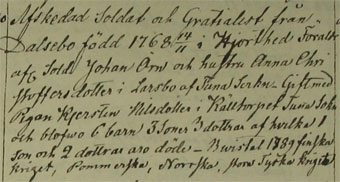 Afskedad Soldat och Gratialest från
Dalsebo född 1768 14/11 i Hjorthed Föräldr
af Sold. Johan Örn och hustru Anna Chri
stoffersdotter i Larsbo af Tuna Sokn - Gift med
Pigan Kjerstin Nilsdotter i Källtorpet Tuna Sokn
och blefwo 6 barn 3 Söner 3 döttrar af hvilka 1
son och 2 döttrar äro döde - Bwistat 1789 finska
kriget, Pommerska, Norrska, stora Tyska krigit